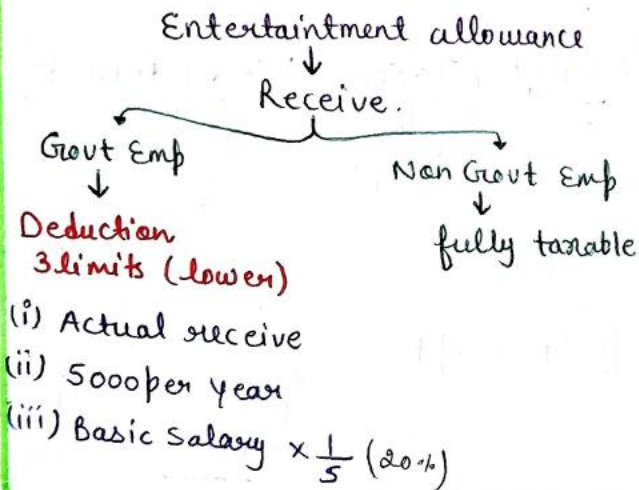 Entertaintment allowance
↓
Receive.
Govt Emp
↓
Deduction
3 limits (lower)
(i) Actual receive
(ii) 5000 per year
(iii) Basic Salary × 1/5 (20%)
Non Govt Emp
↓
fully taxable